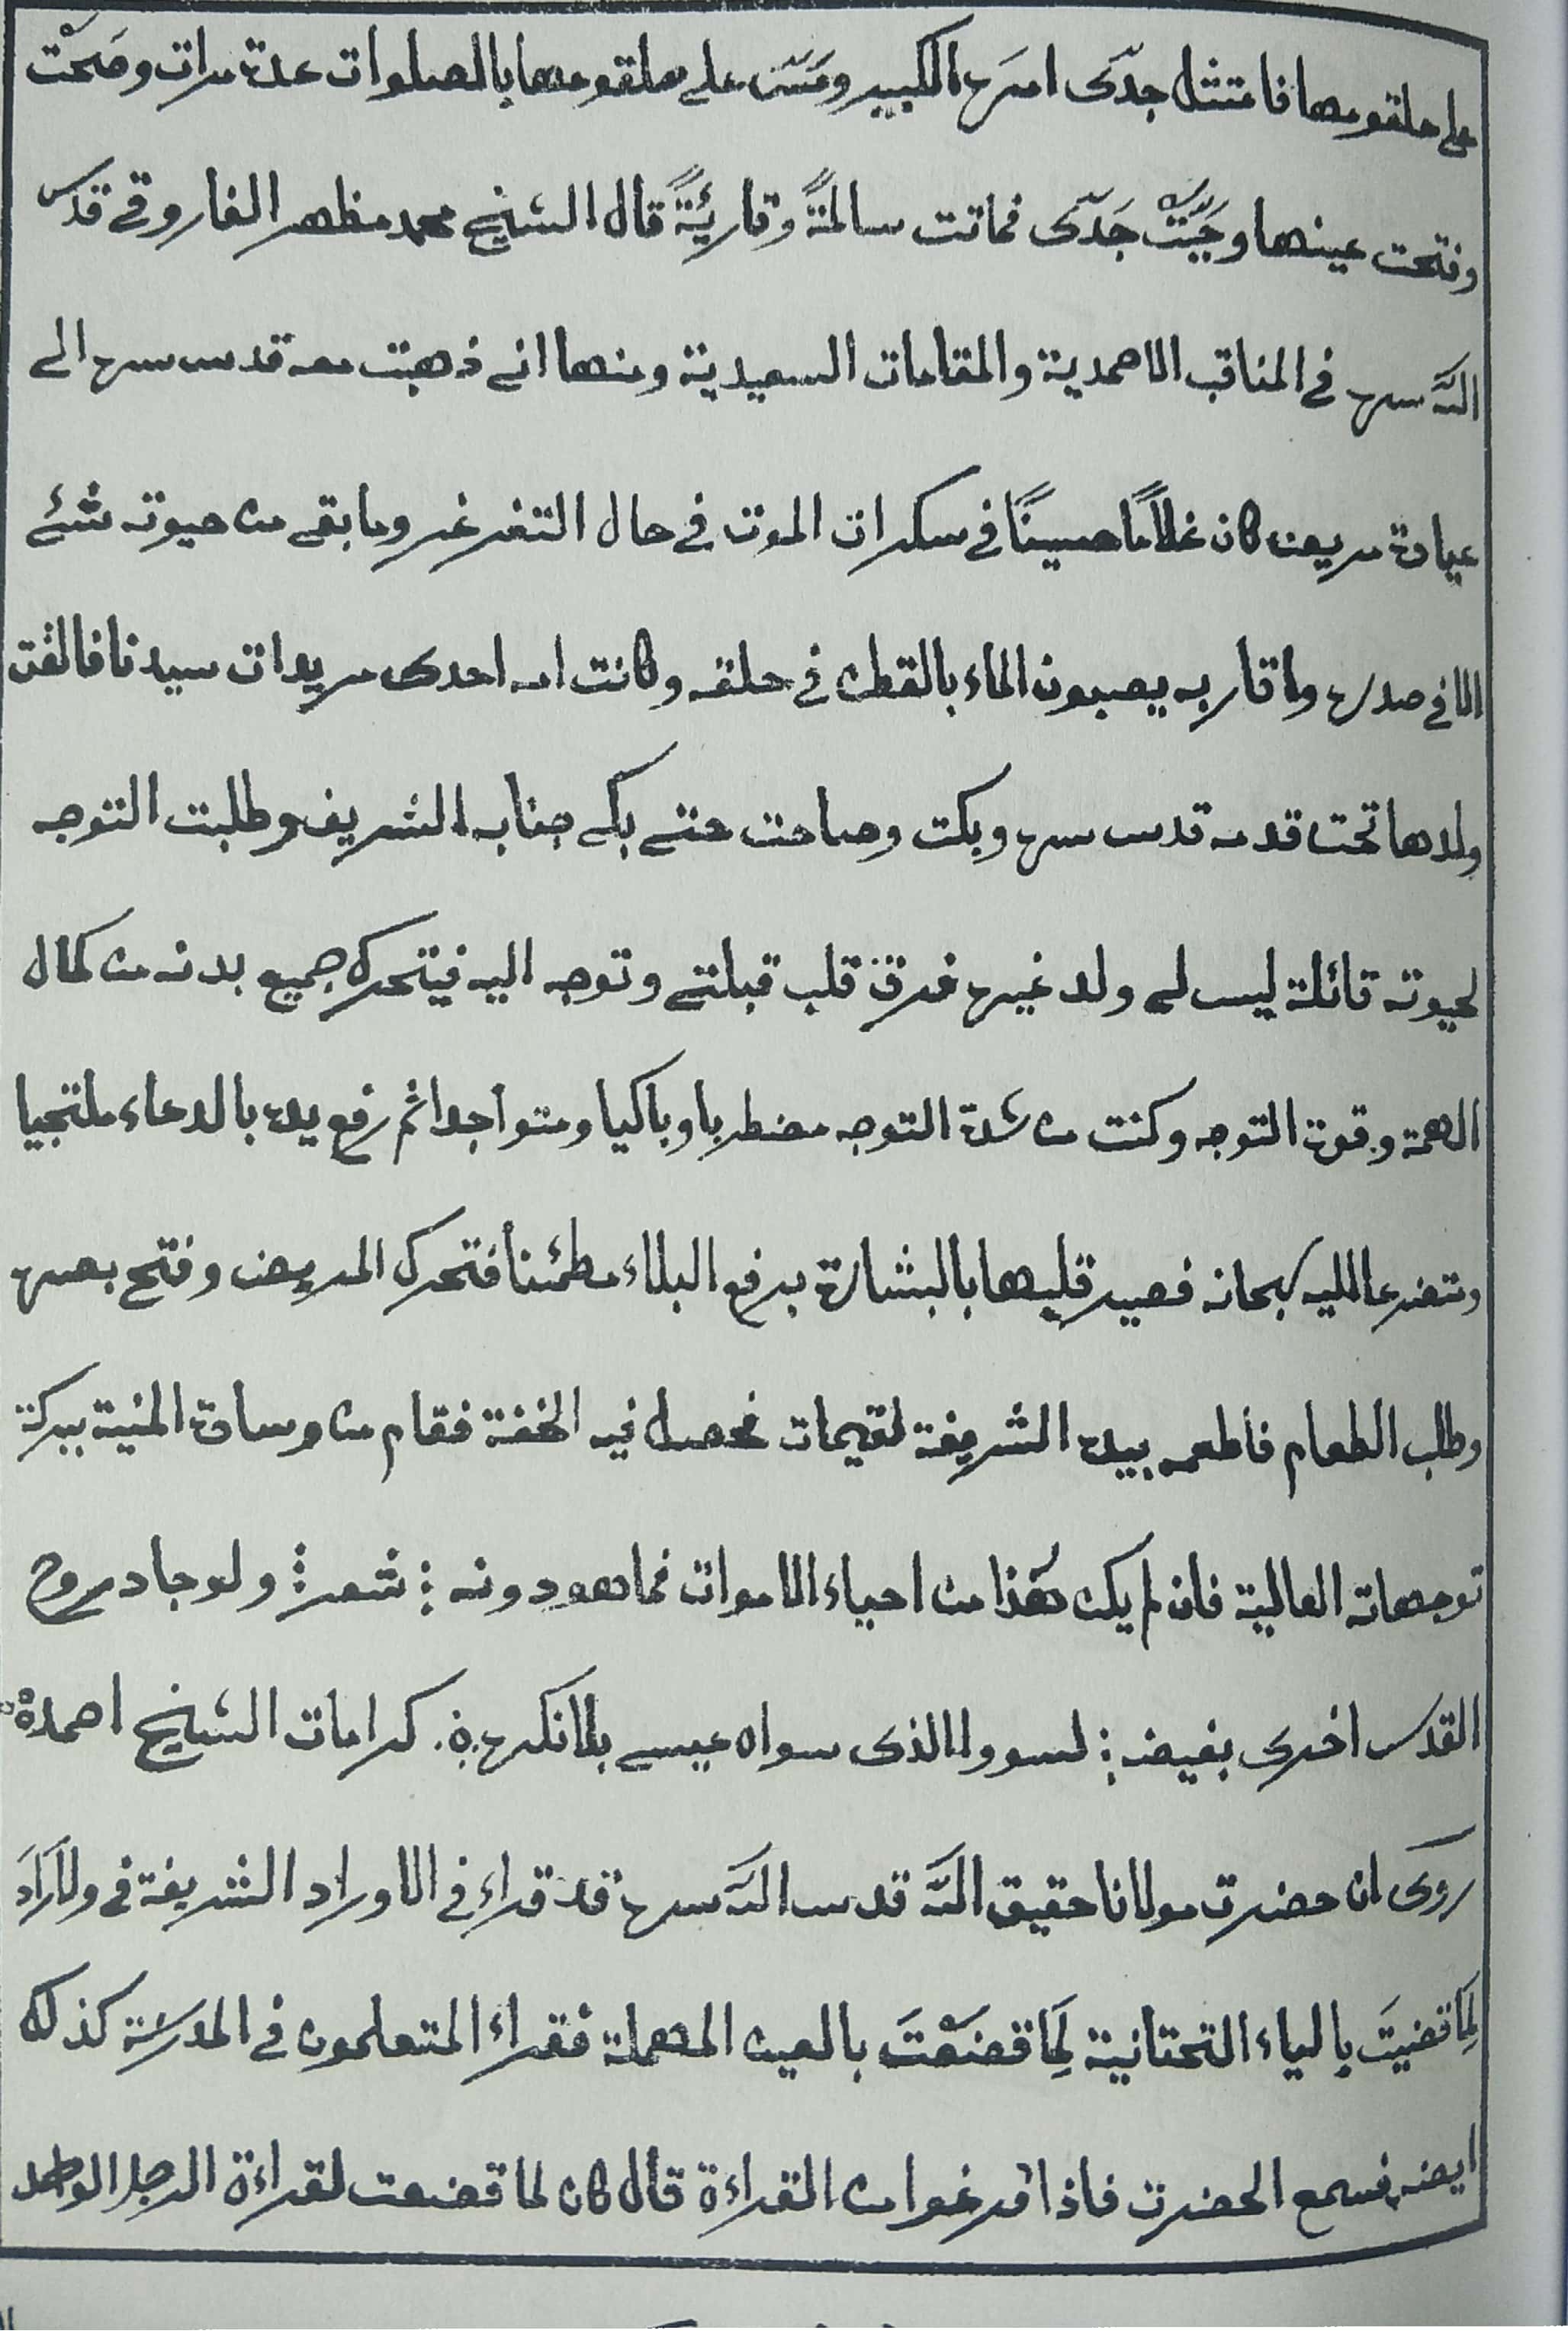 على حلقومها فامتثل جدّى امره الكبير ومَسَّ على حلقومها بالصلوات عدة مرات وصَحَّت
وفتحت عينها وحَيَّتْ جَدّى فماتت سالمةً وقاريَّةً قال الشيخ محمد مظهر الفاروقى قدس
اللّه سره فى المناقب الاحمدية والمقامات السعيدية ومنها انى ذهبت معه قدس سره الى
عيادة مريض كان غلاماً حسيناً فى سكرات الموت فى حال التغرغر وما بقى من حيوته شئ
الا فى صدره واقاربه يصبون الماء بالقطن فى حلقه وكانت امه احدى مريدات سيدنا فالقت
ولدها تحت قدمه قدس سره وبكت وصاحت حتى بكى جنابه الشريف وطلبت التوجه
لحيوته قائلة ليس لى ولد غيره فرق قلب قبلتى وتوجه اليه فيتحرك جميع بدنه من كمال
الهمة وقوة التوجه وكنت من شدة التوجه مضطربا وباكيا ومتواجدا ثم رفع يده بالدعاء ملتجيا
ومتضرعا اليه سبحانه فصير قلبها بالبشارة بدفع البلاء مطمئنا فتحرك المريض وفتح بصره
وطلب الطعام فأطعمه بيده الشريفة لقيمات فحصل فيه الخفة فقام من وسادة المنية ببركة
توجهاته العالية فان لم يكن هٰذا من احياء الاموات فما هو دونه ؛ شعر ؛ ولو جاد روح
القدس اخرى بفيضه ؛ لسووا الذى سواه عيسى بلا نكره ؛ كرامات الشيخ احمده
روى ان حضرت مولانا حقيق اللّه قدس اللّه سره قد قراء فى الاوراد الشريفة فى ولا رَادَّ
لِمَا قضيتَ بالياء التحتانية لِمَا قضَعْتَ بالعين المهملة فقراء المتعلمون فى المدرسة كذلك
ايضه فسمع الحضرت فاذا فرغوا من القراءة قال كان لما قضعت لقراءة الرجل الواحد